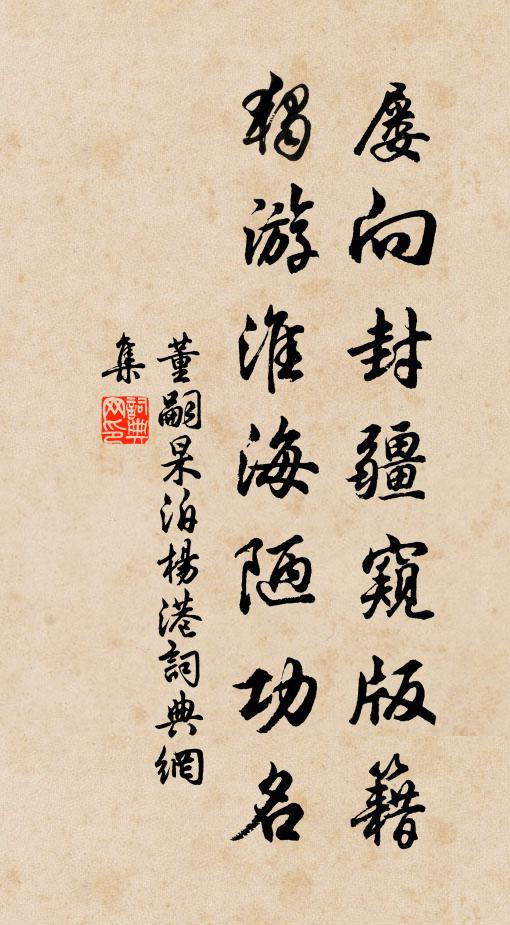 屡向封疆窺版籍
獨游淮海陋功名
董嗣杲泊楊港詞典網
集
詞典
网印